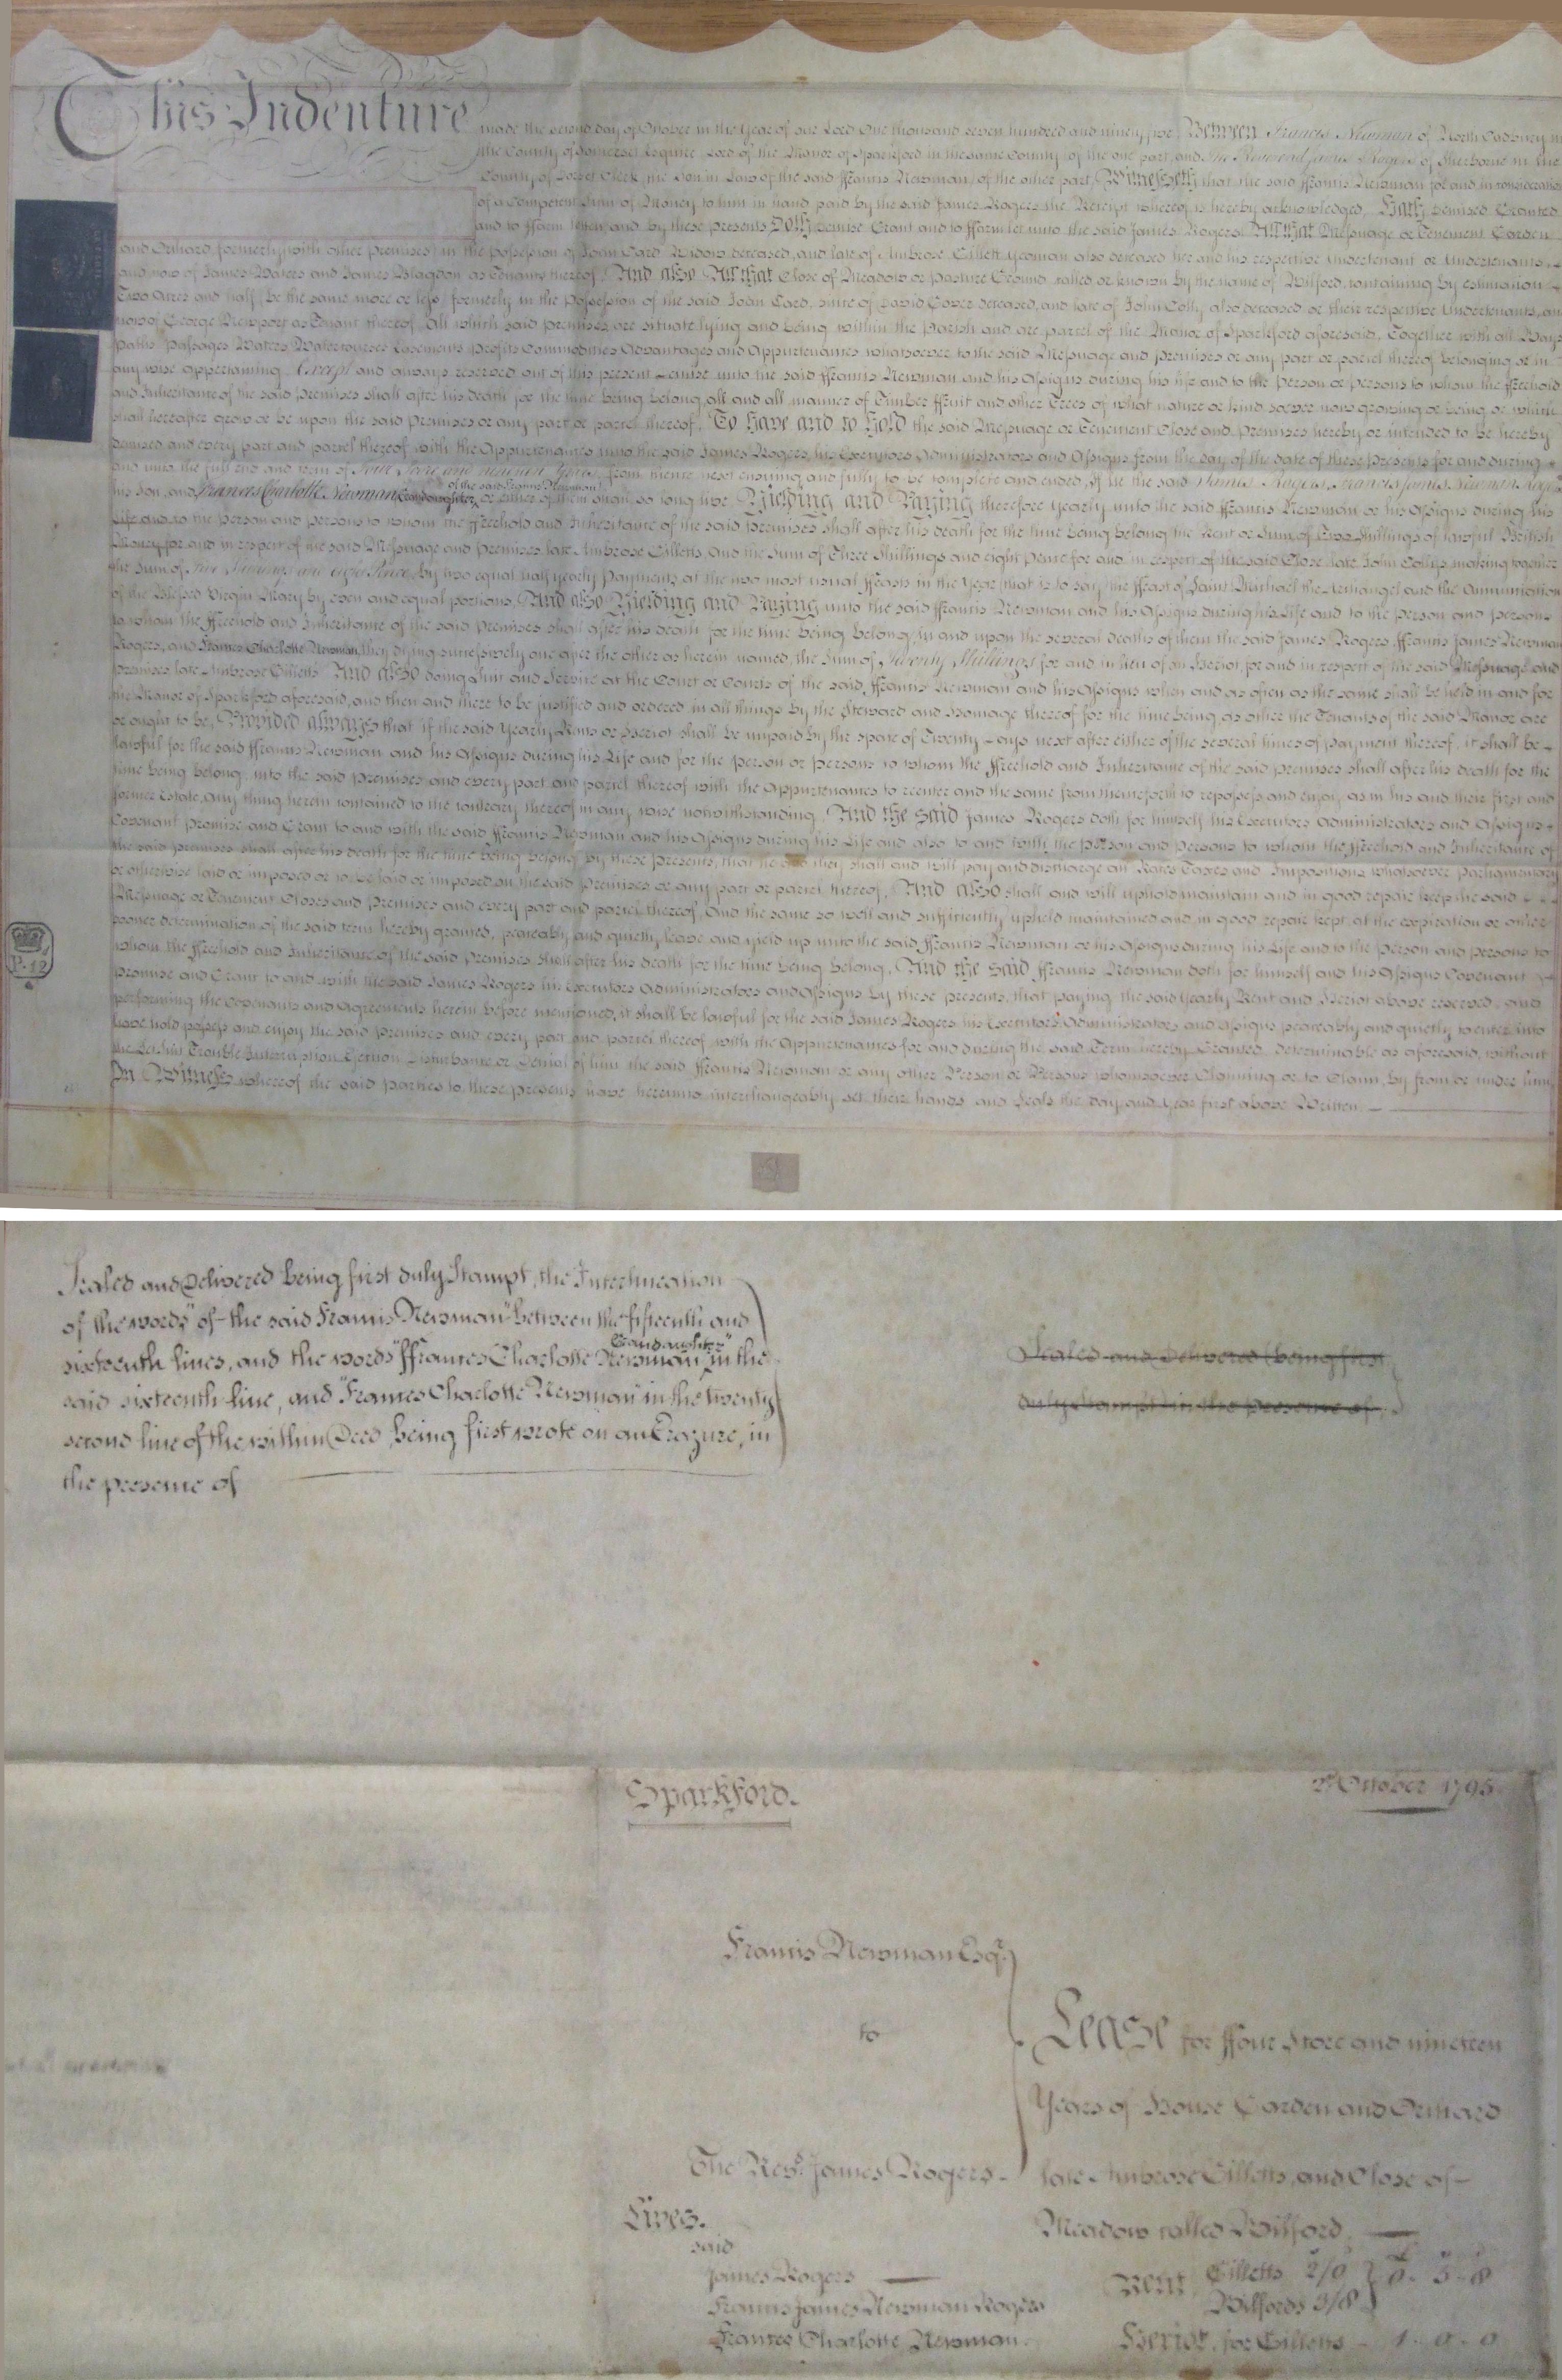 This Indenture made the second day of October in the Year of our Lord One thousand seven hundred and ninety five Between Francis Newman of North Cadbury in
the County of Somerset Esquire Lord of the Manor of Sparkford in the same County of the one part, and The Reverend James Rogers of Sherborne in the
County of Dorset Clerk, the Son in Law of the said ffrancis Newman, of the other part, Witnesseth that the said ffrancis Newman for and in consideration
of a Competent Sum of Money to him in hand paid by the said James Rogers the Receipt whereof is hereby acknowledged, Hath demised Granted
and to ffarm letten, and by these presents Doth demise Grant and to ffarm let unto the said James Rogers All that Messuage or Tenement Garden
and Orchard, formerly (with other premises) in the possession of Joan Card Widow deceased, and late of Ambrose Gillett Yeoman also deceased her and his respective Undertenant or Undertenants
and now of James Waters and James Blagdon as Tenants thereof, And also All that Close of Meadow or Pasture Ground called or known by the name of Bilford, containing by estimation
Two Acres and half, be the same more or less, formerly in the Possession of the said Joan Card, since of David Cover deceased, and late of John Colly also deceased or their respective Undertenants, and
now of George Newport as Tenant thereof, All which said premises are situate lying and being within the Parish and are parcel of the Manor of Sparkford aforesaid, Together with all Ways
Paths Passages Waters Watercourses Easements profits Commodities Advantages and Appurtenances whatsoever to the said Messuage and premises or any part or parcel thereof belonging or in
any wise appertaining Except and always reserved out of this present Demise unto the said ffrancis Newman and his Assigns during his life and to the Person or persons to whom the ffreehold
and Inheritance of the said premises shall after his death for the time being belong, all and all manner of Timber ffruit and other Trees of what nature or kind soever now growing or being or which
shall hereafter grow or be upon the said Premises or any part or parcel thereof, To Have and to Hold the said Messuage or Tenement Close and Premises hereby or intended to be hereby
demised and every part and parcel thereof with the Appurtenances unto the said James Rogers, his Executors Administrators and Assigns from the day of the date of these Presents for and during
and unto the full end and term of ffour Score and nineteen Years from thence next ensuing and fully to be complete and ended, If he the said James Rogers, Francis James Newman Rogers
of the said Francis Newman
his Son, and Frances Charlotte Newman Grandaughter, or either of them shall so long live Yielding and Paying therefore yearly unto the said ffrancis Newman or his Assigns during his
Life, and to the Person and persons to whom the ffreehold and Inheritance of the said premises shall after his death for the time being belong the Rent or Sum of Two Shillings of lawful British
Money, for and in respect of the said Messuage and premises late Ambrose Gilletts, and the Sum of Three Shillings and eight pence for and in respect of the said Close late John Collys, making together
the Sum of Five Shillings and eight Pence, by two equal half yearly Payments at the two most usual ffeasts in the Year (that is to say) the ffeast of Saint Michael the Archangel and the Annunciation
of the Blessed Virgin Mary by even and equal portions, And also Yielding and Paying unto the said ffrancis Newman and his Assigns during his Life and to the person and persons
to whom the ffreehold and Inheritance of the said premises shall after his death for the time being belong, In and upon the several deaths of them the said James Rogers, ffrancis James Newman
Rogers, and Frances Charlotte Newman, they dying successively one after the other as herein named, the Sum of Twenty Shillings for and in lieu of an Heriot, for and in respect of the said Messuage and
premises late Ambrose Gilletts And also doing Suit and Service at the Court or Courts of the said ffrancis Newman and his Assigns when and as often as the same shall be held in and for
the Manor of Sparkford aforesaid, and then and there to be justified and ordered in all things by the Steward and Homage thereof for the time being, as other the Tenants of the said Manor are
or ought to be, Provided always that if the said Yearly Rent or Heriot shall be unpaid by the space of Twenty Days next after either of the several times of payment thereof, it shall be
lawful for the said ffrancis Newman and his Assigns during his Life and for the person or persons to whom the ffreehold and Inheritance of the said premises shall after his death for the
time being belong, into the said premises and every part and parcel thereof with the Appurtenances to reenter and the same from thenceforth to repossess and enjoy as in his and their first and
former Estate, any thing herein contained to the contrary thereof in any wise notwithstanding, And the said James Rogers doth for himself his Executors Administrators and Assigns
Covenant promise and Grant to and with the said ffrancis Newman and his Assigns during his Life and also to and with the person and persons to whom the ffreehold and Inheritance of
the said premises shall after his death for the time being belong by these presents, that he and they shall and will pay and discharge all Rates Taxes and Impositions whatsoever Parliamentary
or otherwise laid or imposed or to be laid or imposed on the said premises or any part or parcel thereof, And also shall and will uphold maintain and in good repair keep the said
Messuage or Tenement Closes and Premises and every part and parcel thereof, And the same so well and sufficiently upheld maintained and in good repair kept at the expiration or other
sooner determination of the said term hereby granted, peaceably and quietly leave and yield up unto the said ffrancis Newman or his Assigns during his Life and to the person and persons to
whom the ffreehold and Inheritance of the said premises shall after his death for the time being belong, And the said ffrancis Newman doth for himself and his Assigns Covenant
promise and Grant to and with the said James Rogers his Executors Administrators and Assigns by these presents, that paying the said yearly Rent and Heriot above reserved, and
performing the Covenants and agreements herein before mentioned, it shall be lawful for the said James Rogers his Executors Administrators and Assigns peaceably and quietly to enter into
have hold possess and enjoy the said premises and every part and parcel thereof with the Appurtenances for and during the said Term hereby Granted determinable as aforesaid, without
the Let Suit Trouble Interruption Ejection Disturbance or Denial of him the said ffrancis Newman or any other Person or Persons whomsoever Claiming or to Claim by from or under him
In Witness whereof the said parties to these presents have hereunto interchangeably set their hands and Seals the day and Year first above Written
Sealed and Delivered being first duly Stampt, the Interlineation
of the words "of the said Francis Newman" between the fifteenth and
Grandaughter"
sixteenth lines, and the words "ffrances Charlotte Newman in the
said sixteenth line, and "Frances Charlotte Newman" in the twenty
second line of the within Deed being first wrote on an Erazure, in
the presence of
Sealed and Delivered (being first
duly Stampt) in the presence of
Sparkford.
2d October 1795.
Francis Newman Esqr.
to
The Revd. James Rogers.
Lease for ffour Score and nineteen
Years of House Garden and Orchard
late Ambrose Gilletts, and Close of
Meadow called Bilford.
Lives.
said
James Rogers
Francis James Newman Rogers
Frances Charlotte Newman.
Rent Gilletts 2/0 } 0. 5. 8
Bilfords 3/8
Heriot. for Gilletts 1. 0. 0